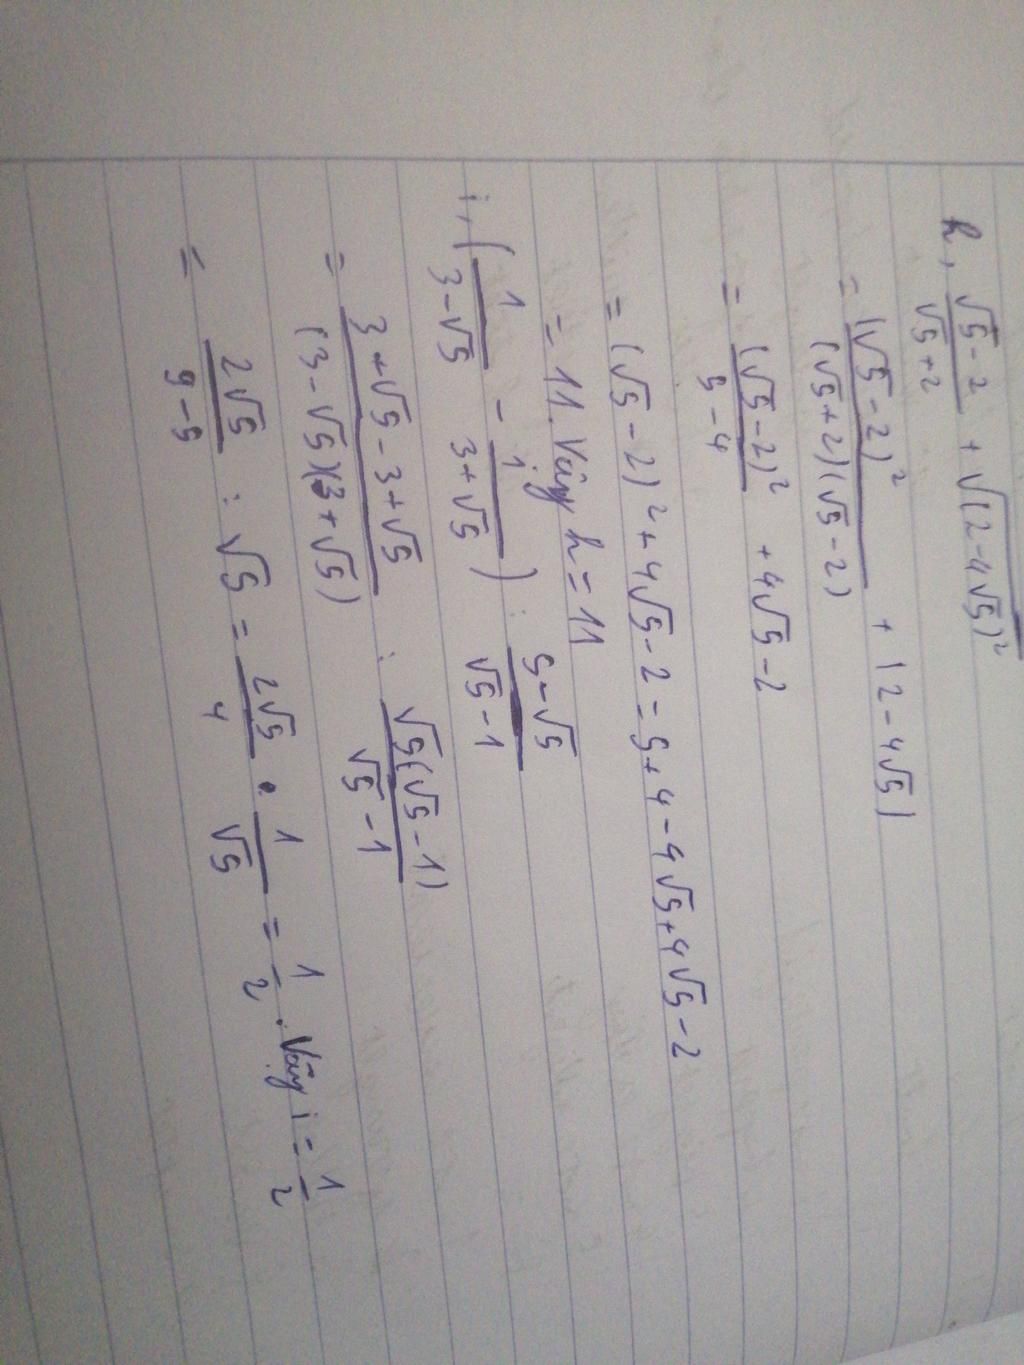 h, \frac{√5-2}{√5+2} + √(2-4√5)²
= \frac{(√5-2)²}{(√5+2)(√5-2)} + |2-4√5|
= \frac{(√5-2)²}{5-4} + 4√5-2
= (√5-2)² + 4√5-2 = 5+4-4√5+4√5-2
= 11. Vậy h = 11
i, ( \frac{1}{3-√5} - \frac{1}{3+√5} ) : \frac{5-√5}{√5-1}
= \frac{3+√5-3+√5}{(3-√5)(3+√5)} : \frac{√5(√5-1)}{√5-1}
= \frac{2√5}{9-5} : √5 = \frac{2√5}{4} . \frac{1}{√5} = \frac{1}{2}. Vậy i = \frac{1}{2}